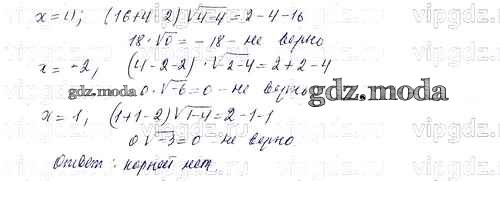 x=4; (16+4-2)√4-4=2-4-16
18·√0=-18- не верно
x=-2, (4-2-2)·√-2-4=2+2-4
0·√-6=0 - не верно
x=1, (1+1-2)√1-4=2-1-1
0√-3=0 не верно
Ответ: корней нет.
gdz.moda
gdz.moda
vipgdz